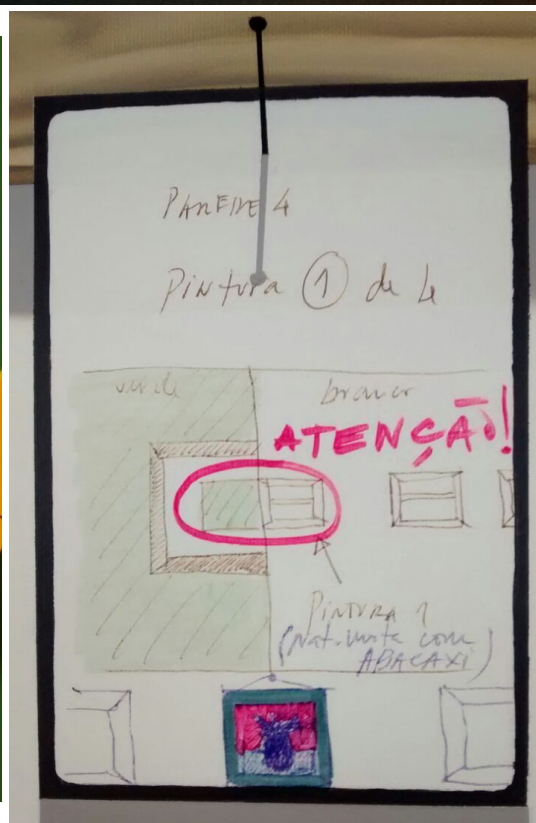 PAREDE 4
Pintura 1 de 4
verde branco
ATENÇÃO!
PINTURA 1
(nat. morta com
ABACAXI)